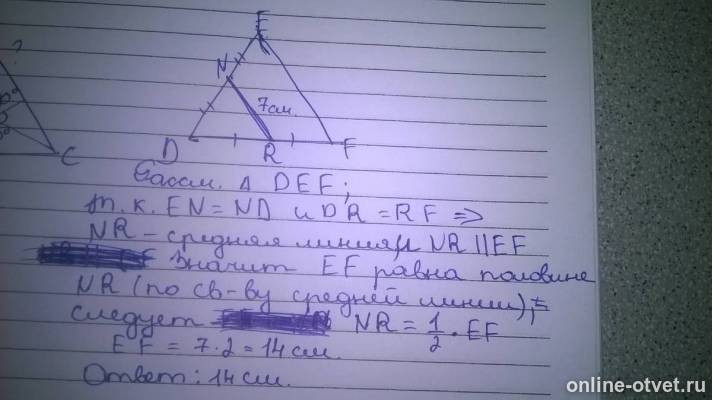 ?
E
N
7см.
D
R
F
C
Рассм. Δ DEF;
т.к. EN = ND и DR = RF =>
NR – средняя линия, NR || EF
Значит EF равна половине
NR (по св-ву средней линии),
следует NR = 1/2 · EF
EF = 7 · 2 = 14 см.
Ответ: 14 см.
online-otvet.ru